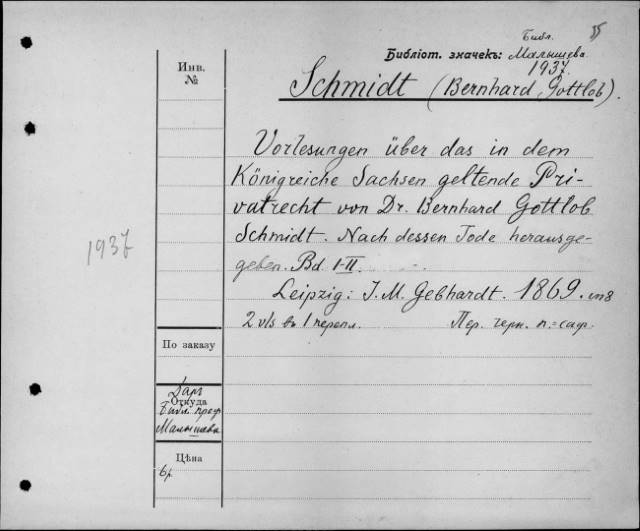 Библ.
Библіот. значекъ: Малышева
1937.
Инв.
№
Schmidt (Bernhard Gottlob).
Vorlesungen über das in dem
Königreiche Sachsen geltende Pri-
vatrecht von Dr. Bernhard Gottlob
Schmidt. Nach dessen Tode herausge-
geben. Bd. I-II.
Leipzig: J. M. Gebhardt. 1869. in 8
2 v/s въ 1 перепл. Пер. черн. п.=сафр.
1937
По заказу
Даръ
Откуда
Библ. проф.
Малышева
Цѣна
6р.